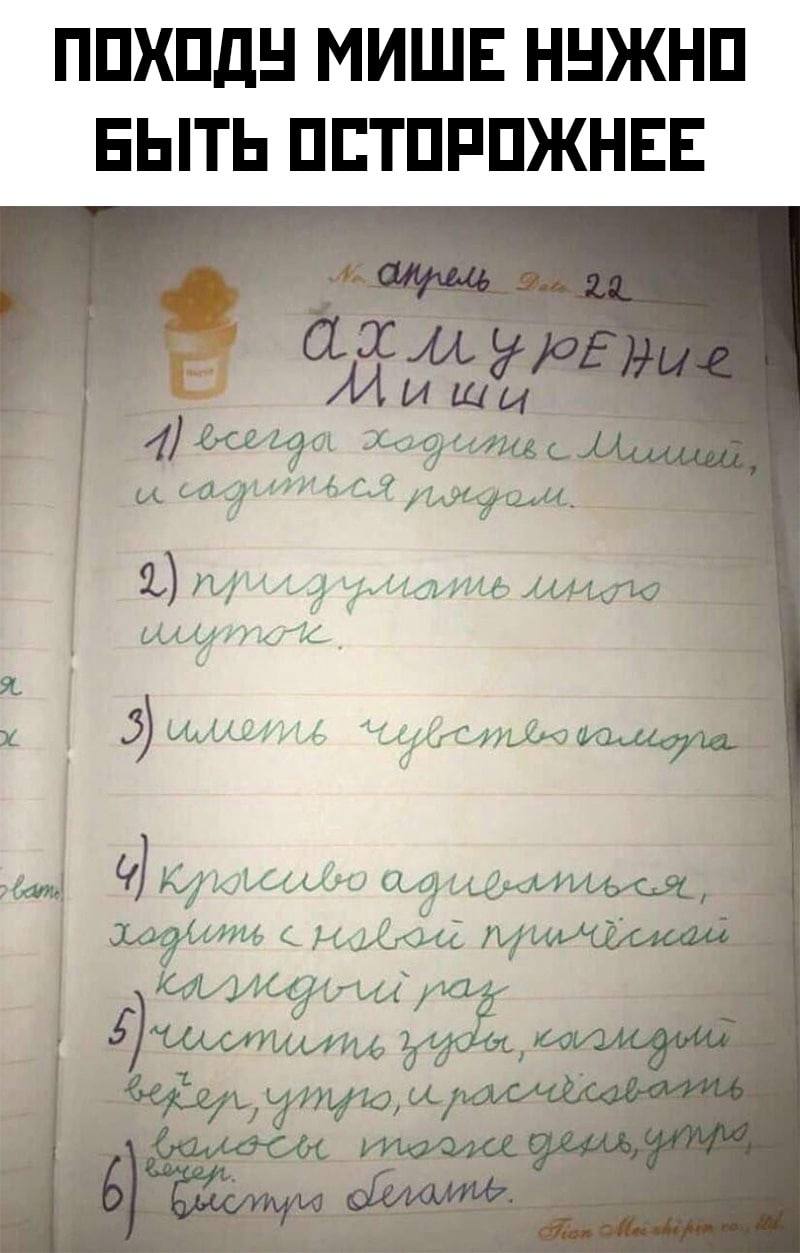 ПОХОДУ МИШЕ НУЖНО
БЫТЬ ОСТОРОЖНЕЕ
No. апрель Date 22
ахмурЕние
Миши
1) всегда ходить с Мишей,
и садиться рядом.
2) придумать много
шуток.
я
3) иметь чувство юмора
4) красиво адиваться,
овать
ходить с новой причёской
каждый раз
5) чистить зубы, каждый
вечер, утро, и расчёсовать
волосы тоже день, утро,
вечер.
6) Быстро бегать.